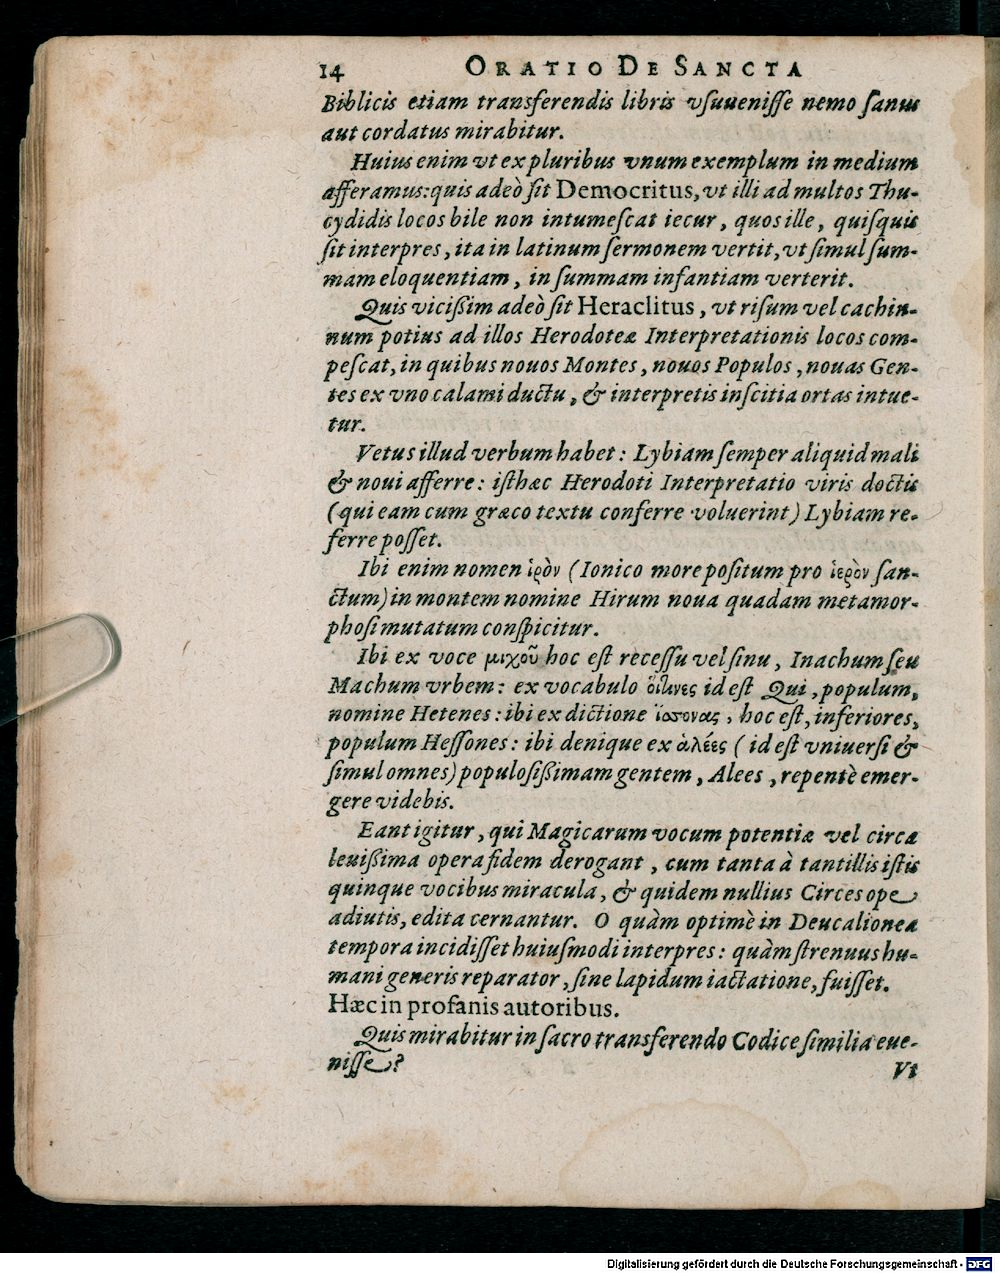 14 ORATIO DE SANCTA
Biblicis etiam transferendis libris vſuueniſſe nemo ſanus
aut cordatus mirabitur.
Huius enim vt ex pluribus vnum exemplum in medium
afferamus: quis adeò ſit Democritus, vt illi ad multos Thu-
cydidis locos bile non intumeſcat iecur, quos ille, quiſquis
ſit interpres, ita in latinum ſermonem vertit, vt ſimul ſum-
mam eloquentiam, in ſummam infantiam verterit.
Quis viciſsim adeò ſit Heraclitus, vt riſum vel cachin-
num potius ad illos Herodoteæ Interpretationis locos com-
peſcat, in quibus nouos Montes, nouos Populos, nouas Gen-
tes ex vno calami ductu, & interpretis inſcitia ortas intue-
tur.
Vetus illud verbum habet: Lybiam ſemper aliquid mali
& noui afferre: iſthæc Herodoti Interpretatio viris doctis
(qui eam cum græco textu conferre voluerint) Lybiam re-
ferre poſſet.
Ibi enim nomen ἱρὸν (Ionico more poſitum pro ἱερὸν ſan-
ctum) in montem nomine Hirum noua quadam metamor-
phoſi mutatum conſpicitur.
Ibi ex voce μιχοῦ hoc eſt receſſu vel ſinu, Inachum ſeu
Machum vrbem: ex vocabulo οἵτινες id eſt Qui, populum,
nomine Hetenes: ibi ex dictione ἵσσονας, hoc eſt, inferiores,
populum Heſſones: ibi denique ex ἁλέες (id eſt vniuerſi &
ſimul omnes) populoſiſsimam gentem, Alees, repentè emer-
gere videbis.
Eant igitur, qui Magicarum vocum potentiæ vel circa
leuiſsima opera fidem derogant, cum tanta à tantillis iſtis
quinque vocibus miracula, & quidem nullius Circes ope
adiutis, edita cernantur. O quàm optimè in Deucalionea
tempora incidiſſet huiuſmodi interpres: quàm ſtrenuus hu-
mani generis reparator, ſine lapidum iactatione, fuiſſet.
Hæc in profanis autoribus.
Quis mirabitur in ſacro transferendo Codice ſimilia eue-
niſſe?
Vt
Digitalisierung gefördert durch die Deutsche Forschungsgemeinschaft - DFG